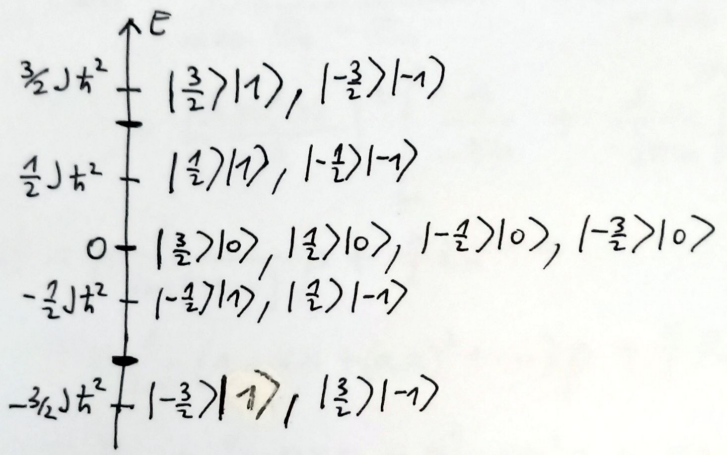 E
3/2 Jħ² |3/2⟩|1⟩, |-3/2⟩|-1⟩
1/2 Jħ² |1/2⟩|1⟩, |-1/2⟩|-1⟩
0 |3/2⟩|0⟩, |1/2⟩|0⟩, |-1/2⟩|0⟩, |-3/2⟩|0⟩
-1/2 Jħ² |-1/2⟩|1⟩, |1/2⟩|-1⟩
-3/2 Jħ² |-3/2⟩|1⟩, |3/2⟩|-1⟩